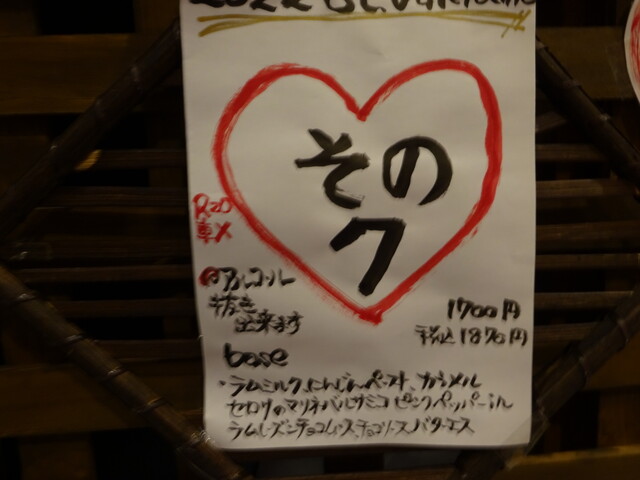 2022 St. Valentine
その
ク
R20
車X
アルコール
抜き
出来ます
1700円
税込1870円
base
・ラムミルク、にんじんペースト、カラメル
セロリのマリネ バルサミコ ピンクペッパー
ラムレーズンチョコムース、チョコソース、バターエス